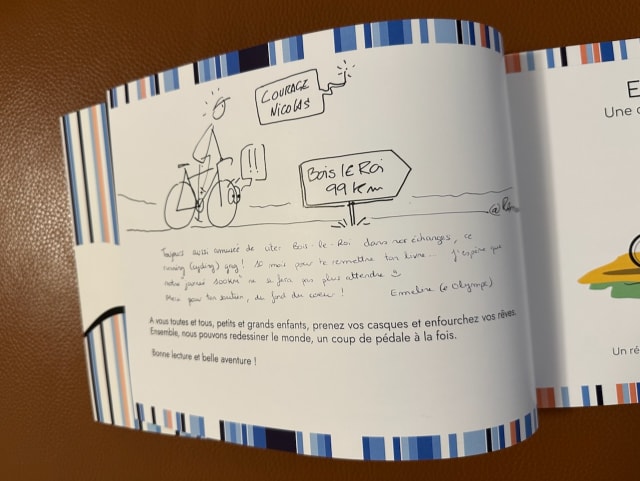 COURAGE
NICOLAS
!!
BOIS LE ROI
99 km
Toujours aussi amusée de citer Bois-le-Roi dans nos échanges, ce
running (cycling) gag ! 10 mois pour te remettre ton livre... J'espère que
notre journée ne se fera pas plus attendre
Merci pour ton soutien, du fond du coeur ! Emmeline (& Olympe)
A vous toutes et tous, petits et grands enfants, prenez vos casques et enfourchez vos rêves.
Ensemble, nous pouvons redessiner le monde, un coup de pédale à la fois.
Bonne lecture et belle aventure !
E
Une
Un ré